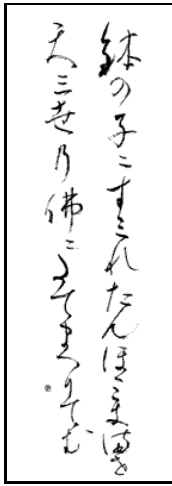 鉢の子にすみれたんほゝこきませ
て三世乃佛にたてまつりてむ